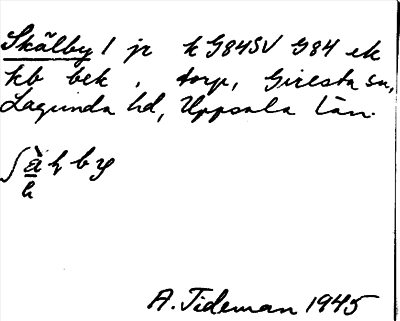 Skälby 1 jr k G84SV G84 ek
kb bek, torp, Giresta sn,
Lagunda hd, Uppsala län.
A. Tideman 1945